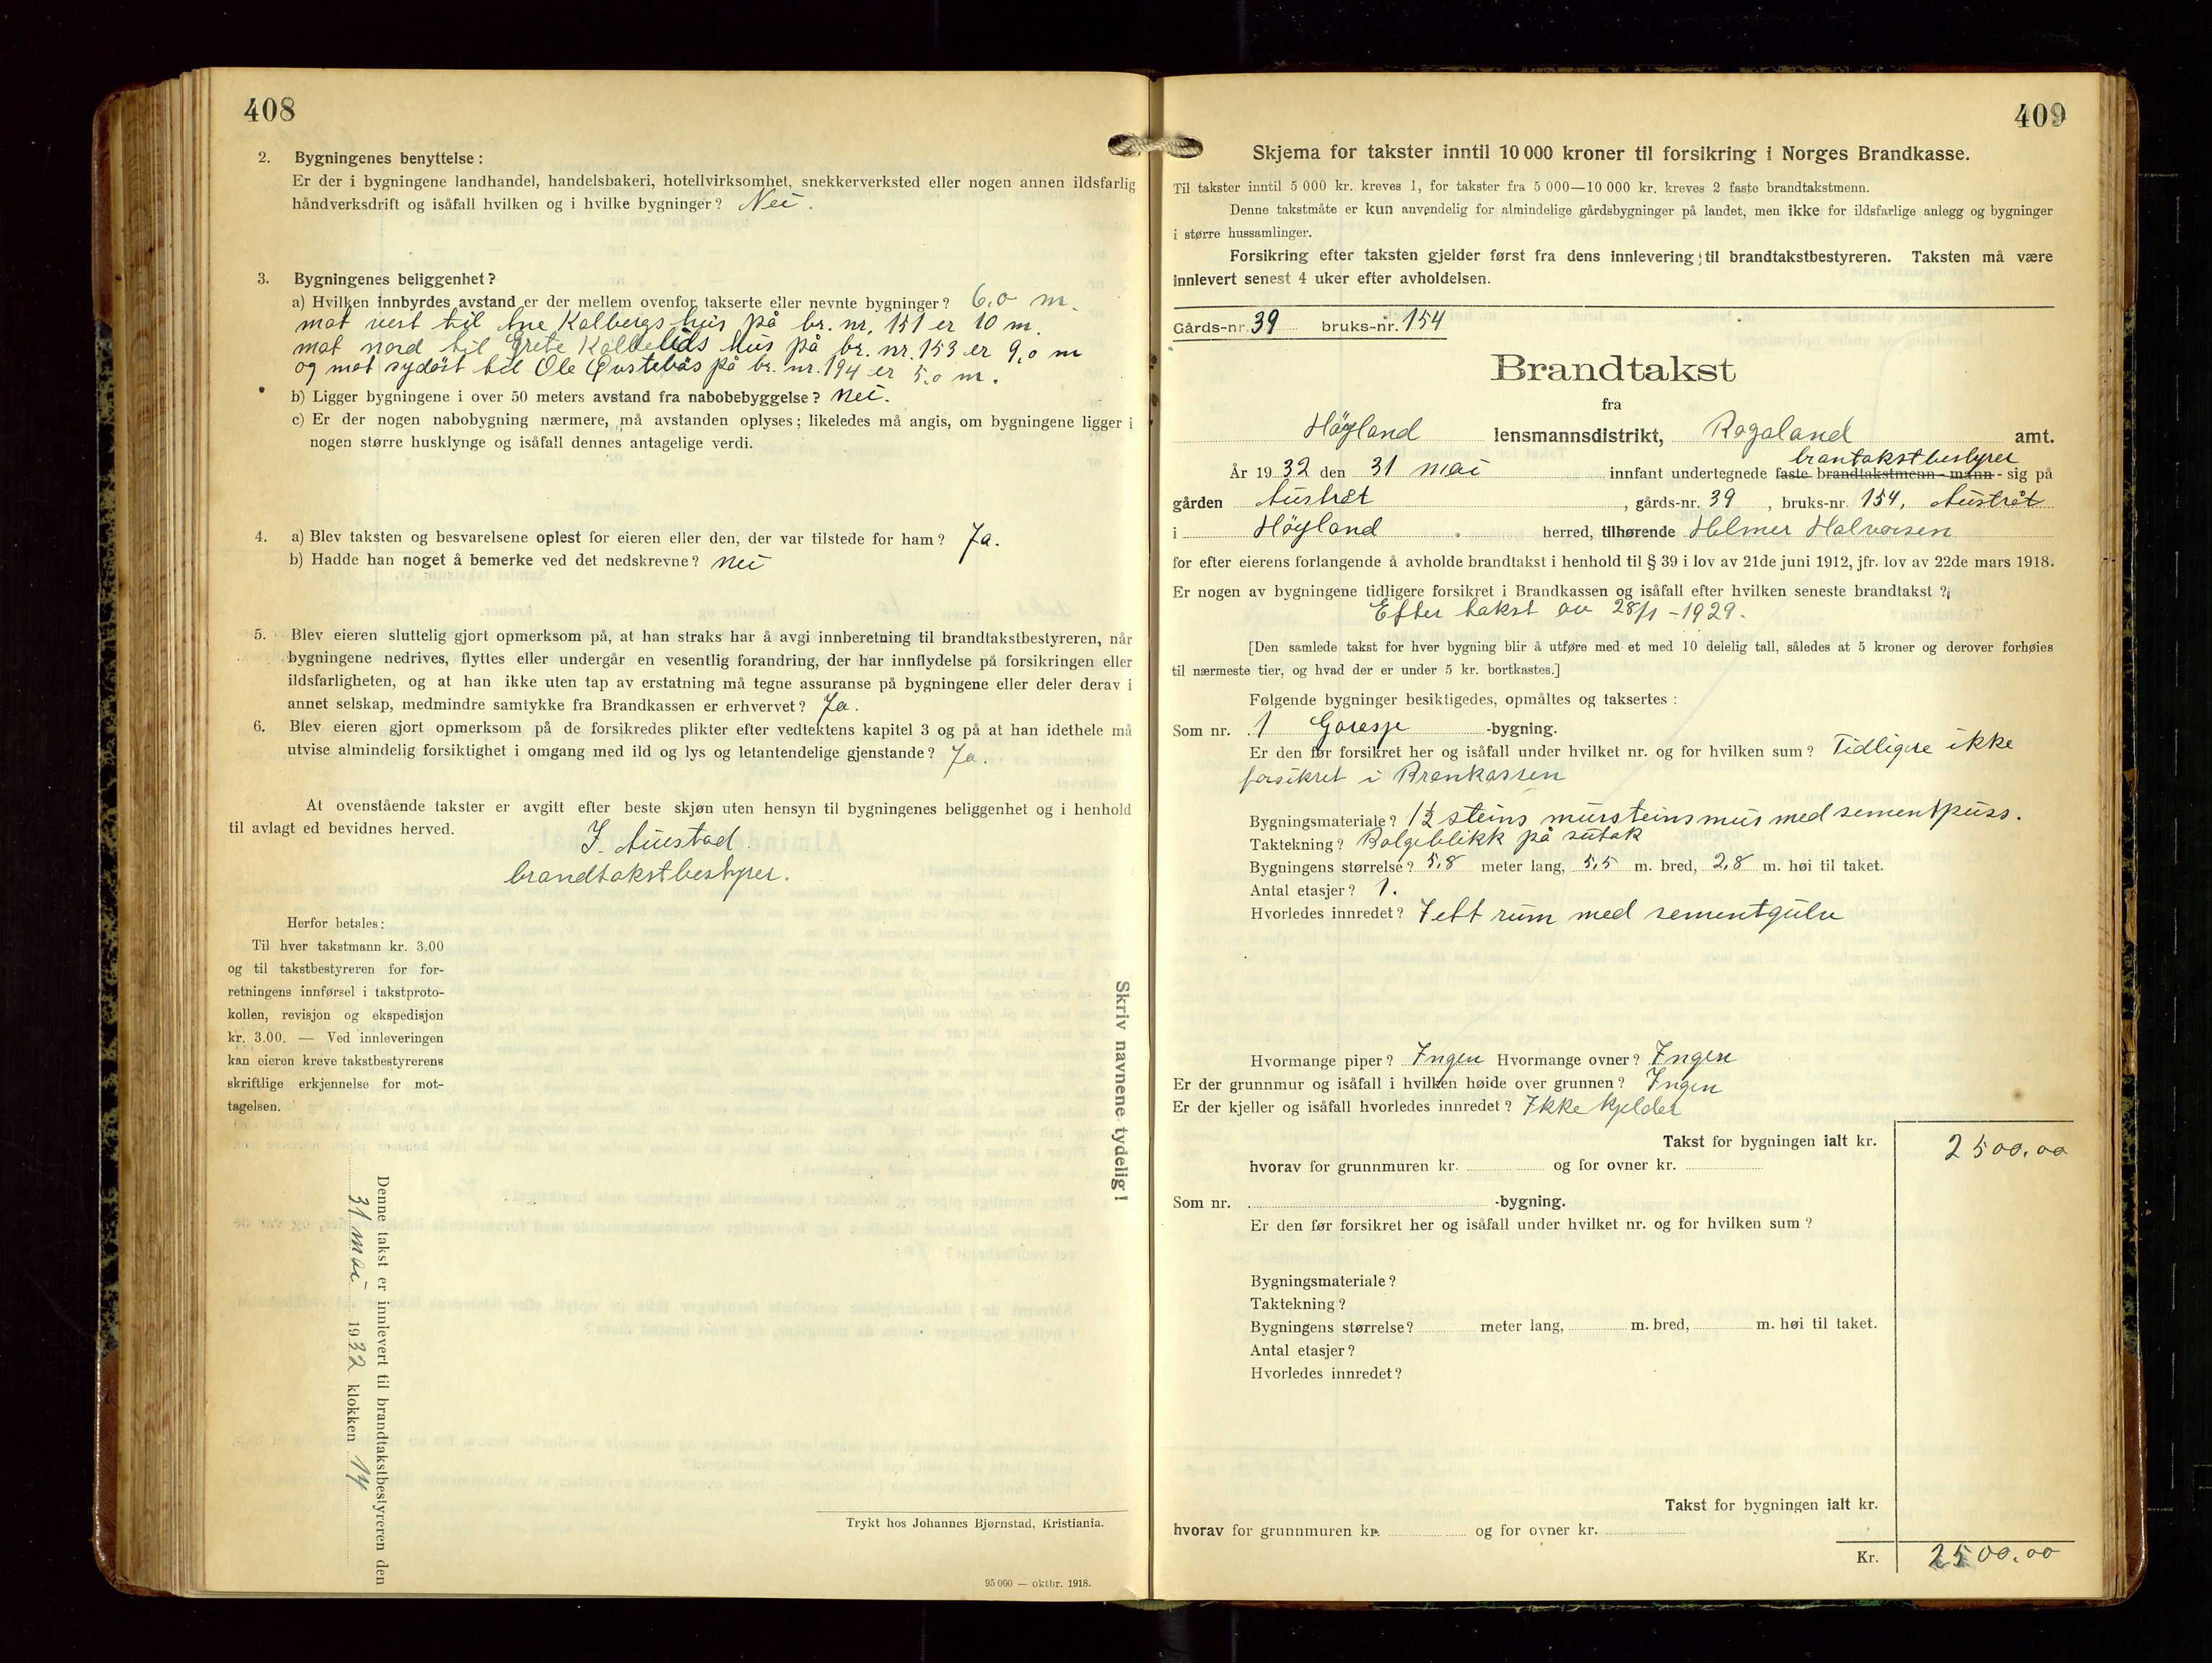 408
2. Bygningenes benyttelse :
Er der i bygningene landhandel, handelsbakeri, hotellvirksomhet, snekkerverksted eller nogen annen ildsfarlig
håndverksdrift og isåfall hvilken og i hvilke bygninger? Nei.
3. Bygningenes beliggenhet?
a) Hvilken innbyrdes avstand er der mellem ovenfor takserte eller nevnte bygninger? 6,0 m.
mot vest til Ane Kalbergs hus på br. nr. 151 er 10 m.
mot nord til Grete hus på br. nr. 153 er 9,0 m
og mot sydøst til Ole Øvstebøs på br. nr. 194 er 5,0 m.
b) Ligger bygningene i over 50 meters avstand fra nabobebyggelse? nei.
c) Er der nogen nabobygning nærmere, må avstanden oplyses; likeledes må angis, om bygningene ligger i
nogen større husklynge og isåfall dennes antagelige verdi.
4. a) Blev taksten og besvarelsene oplest for eieren eller den, der var tilstede for ham? Ja.
b) Hadde han noget å bemerke ved det nedskrevne? nei
5. Blev eieren sluttelig gjort opmerksom på, at han straks har å avgi innberetning til brandtakstbestyreren, når
bygningene nedrives, flyttes eller undergår en vesentlig forandring, der har innflydelse på forsikringen eller
ildsfarligheten, og at han ikke uten tap av erstatning må tegne assuranse på bygningene eller deler derav i
annet selskap, medmindre samtykke fra Brandkassen er erhvervet? Ja.
6. Blev eieren gjort opmerksom på de forsikredes plikter efter vedtektens kapitel 3 og på at han idethele må
utvise almindelig forsiktighet i omgang med ild og lys og letantendelige gjenstande? Ja.
At ovenstående takster er avgitt efter beste skjøn uten hensyn til bygningenes beliggenhet og i henhold
til avlagt ed bevidnes herved.
J. Austad.
brandtakstbestyrer.
Herfor betales:
Til hver takstmann kr. 3.00
og til takstbestyreren for for-
retningens innførsel i takstproto-
kollen, revisjon og ekspedisjon
kr. 3.00. — Ved innleveringen
kan eieren kreve takstbestyrerens
skriftlige erkjennelse for mot-
tagelsen.
Denne takst er innlevert til brandtakstbestyreren den
31 mai 1932 klokken 14
Skriv navnene tydelig!
Trykt hos Johannes Bjørnstad, Kristiania.
95 000 — oktbr. 1918.
409
Skjema for takster inntil 10 000 kroner til forsikring i Norges Brandkasse.
Til takster inntil 5 000 kr. kreves 1, for takster fra 5 000—10 000 kr. kreves 2 faste brandtakstmenn.
Denne takstmåte er kun anvendelig for almindelige gårdsbygninger på landet, men ikke for ildsfarlige anlegg og bygninger
i større hussamlinger.
Forsikring efter taksten gjelder først fra dens innlevering til brandtakstbestyreren. Taksten må være
innlevert senest 4 uker efter avholdelsen.
Gårds-nr. 39 bruks-nr. 154
Brandtakst
fra
Høyland lensmannsdistrikt, Rogaland amt.
brantakstbestyrer
År 1932 den 31 mai innfant undertegnede faste brandtakstmenn - mann - sig på
gården Austråt, gårds-nr. 39, bruks-nr. 154, Austråt
i Høyland herred, tilhørende Helmer Halvorsen
for efter eierens forlangende å avholde brandtakst i henhold til § 39 i lov av 21de juni 1912, jfr. lov av 22de mars 1918.
Er nogen av bygningene tidligere forsikret i Brandkassen og isåfall efter hvilken seneste brandtakst ?
Efter takst av 28/1 - 1929.
[Den samlede takst for hver bygning blir å utføre med et med 10 delelig tall, således at 5 kroner og derover forhøies
til nærmeste tier, og hvad der er under 5 kr. bortkastes.]
Følgende bygninger besiktigedes, opmåltes og taksertes :
Som nr. 1 Garasje -bygning.
Er den før forsikret her og isåfall under hvilket nr. og for hvilken sum? Tidligere ikke
forsikret i Brankassen
Bygningsmateriale? 1½ steins mursteinsmur med sementpuss.
Taktekning? Bølgeblikk på sutak
Bygningens størrelse? 5,8 meter lang, 5,5 m. bred, 2,8 m. høi til taket.
Antal etasjer? 1.
Hvorledes innredet? I ett rum med sementgulv
Hvormange piper? Ingen Hvormange ovner? Ingen
Er der grunnmur og isåfall i hvilken høide over grunnen? Ingen
Er der kjeller og isåfall hvorledes innredet? Ikke kjelder
Takst for bygningen ialt kr. 2500.00
hvorav for grunnmuren kr. og for ovner kr.
Som nr. -bygning.
Er den før forsikret her og isåfall under hvilket nr. og for hvilken sum ?
Bygningsmateriale?
Taktekning?
Bygningens størrelse? meter lang, m. bred, m. høi til taket.
Antal etasjer?
Hvorledes innredet?
Takst for bygningen ialt kr.
hvorav for grunnmuren kr. og for ovner kr.
Kr. 2500.00